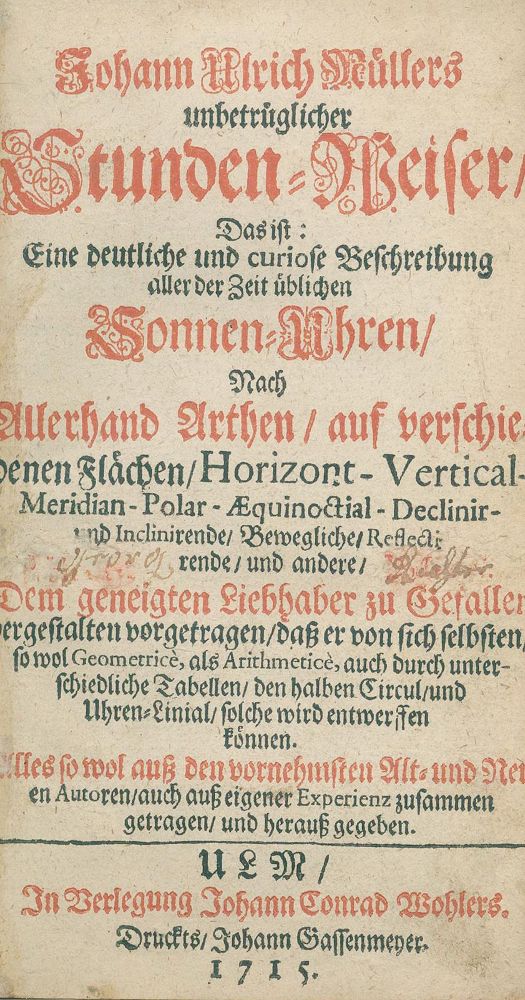 Johann Ulrich Müllers
unbetrüglicher
Stunden-Weiser/
Das ist:
Eine deutliche und curiose Beschreibung
aller der Zeit üblichen
Sonnen-Uhren/
Nach
Allerhand Arthen / auf verschie-
denen Flächen/ Horizont- Vertical-
Meridian - Polar - Æquinoctial - Declinir-
und Inclinirende/ Bewegliche/ Reflecti-
rende/ und andere/
Georg
Dem geneigten Liebhaber zu Gefallen
dergestalten vorgetragen/ daß er von sich selbsten/
so wol Geometricè, als Arithmeticè, auch durch unter-
schiedliche Tabellen/ den halben Circul/ und
Uhren-Linial/ solche wird entwerffen
können.
Alles so wol auß den vornehmsten Alt- und Neu-
en Autoren/ auch auß eigener Experienz zusammen
getragen/ und herauß gegeben.
ULM/
In Verlegung Johann Conrad Wohlers.
Druckts/ Johann Gassenmeyer.
1715.